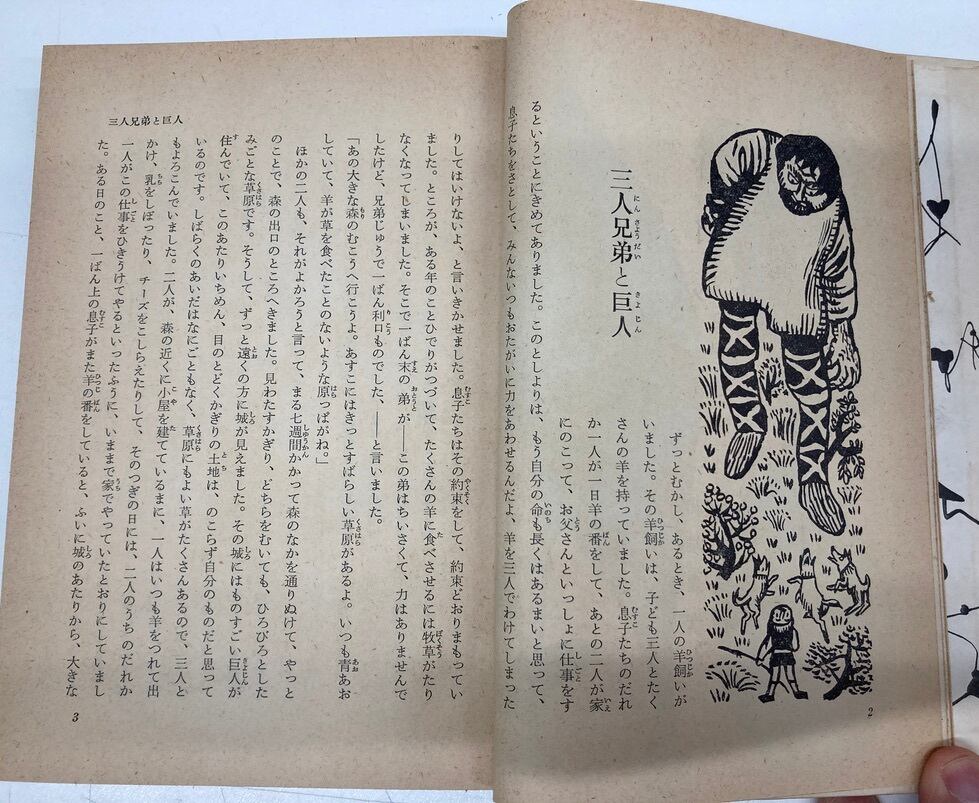 三人兄弟と巨人
ずっとむかし、あるとき、一人の羊飼いが
いました。その羊飼いは、子ども三人とたく
さんの羊を持っていました。息子たちのだれ
か一人が一日羊の番をして、あとの二人が家
にのこって、お父さんといっしょに仕事をす
るということにきめてありました。このとしよりは、もう自分の命も長くはあるまいと思って、
息子たちをさとして、みんないつもおたがいに力をあわせるんだよ、羊を三人でわけてしまった
2
三人兄弟と巨人
りしてはいけないよ、と言いきかせました。息子たちはその約束をして、約束どおりまもってい
ました。ところが、ある年のことひでりがつづいて、たくさんの羊に食べさせるには牧草がたり
なくなってしまいました。そこで一ばん末の弟が――この弟はちいさくて、力はありませんで
したけど、兄弟じゅうで一ばん利口ものでした、――と言いました。
「あの大きな森のむこうへ行こうよ。あすこにはきっとすばらしい草原があるよ。いつも青あお
していて、羊が草を食べたことのないような原っぱがね。」
ほかの二人も、それがよかろうと言って、まる七週間かかって森のなかを通りぬけて、やっと
のことで、森の出口のところへきました。見わたすかぎり、どちらをむいても、ひろびろとした
みごとな草原です。そうして、ずっと遠くの方に城が見えました。その城にはものすごい巨人が
住んでいて、このあたりいちめん、目のとどくかぎりの土地は、のこらず自分のものだと思って
いるのです。しばらくのあいだはなにごともなく、草原にもよい草がたくさんあるので、三人と
もよろこんでいました。二人が、森の近くに小屋を建てているまに、一人はいつも羊をつれて出
かけ、乳をしぼったり、チーズをこしらえたりして、そのつぎの日には、二人のうちのだれか
一人がこの仕事をひきうけてやるといったふうに、いままで家でやっていたとおりにしていまし
た。ある日のこと、一ばん上の息子がまた羊の番をしていると、ふいに城のあたりから、大きな
3